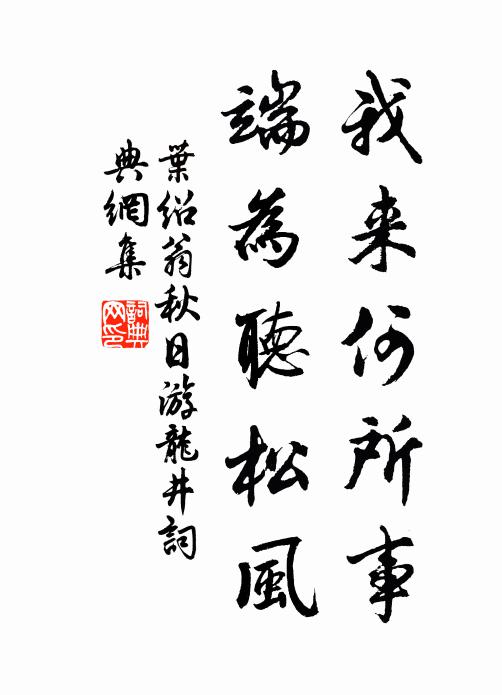 我来何所事
端為聽松風
葉紹翁秋日游龍井詞
典網集
詞典
网印